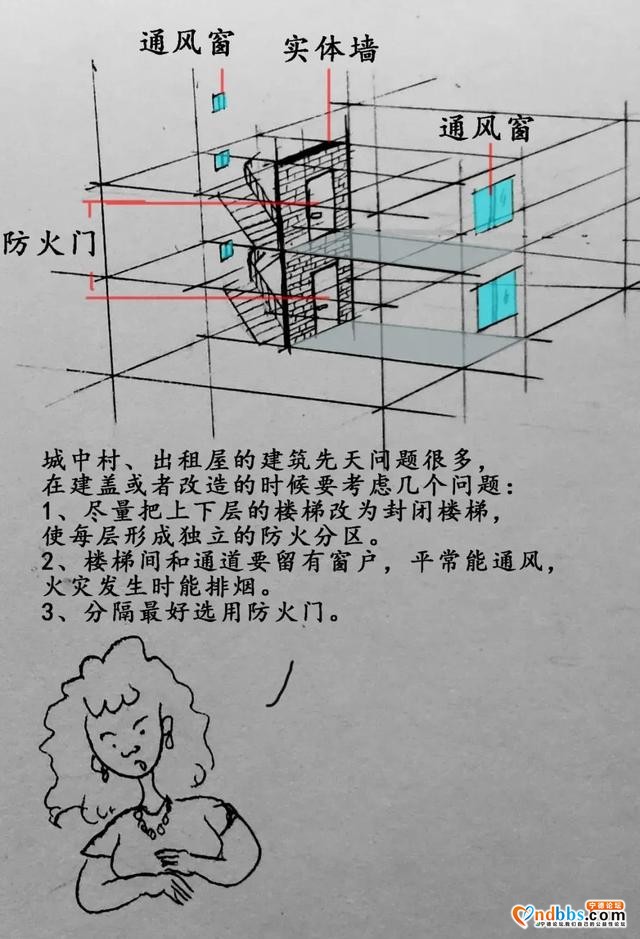 通风窗
实体墙
通风窗
防火门
城中村、出租屋的建筑先天问题很多，
在建盖或者改造的时候要考虑几个问题：
1、尽量把上下层的楼梯改为封闭楼梯，
使每层形成独立的防火分区。
2、楼梯间和通道要留有窗户，平常能通风，
火灾发生时能排烟。
3、分隔最好选用防火门。
ndbbs.com
宁德论坛
宁德论坛我们自己的公益性论坛